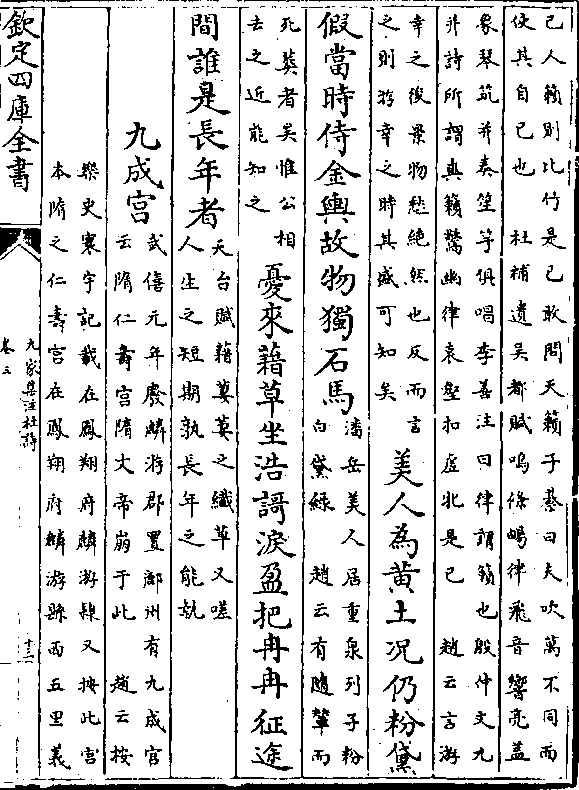 已人籟則比竹是已敢問天籟子綦曰夫吹萬不同而
使其自已也　杜補遺吳都賦鳴條暢律飛音響亮蓋
象琴筑并奏笙竽俱唱李善注曰律謂籟也殷仲文九
井詩所謂爽籟驚幽律哀壑扣虛牝是已　趙云言游
幸之後景物愁絶然也反而言
之則游幸之時其盛可知矣
美人為黄土况仍粉黛
假當時侍金輿故物獨石馬
潘岳美人居重泉列子粉
白黛緑　趙云有隨輦而
死葬者矣惟公相
去之近能知之
憂來藉草坐浩謌淚盈把冉冉征途
間誰是長年者
天台賦藉萋萋之纖草又嗟
人生之短期孰長年之能執
九成宫
武徳元年廢麟游郡置鄜州有九成宫
云隋仁壽宫隋大帝崩于此　趙云按
樂史寰宇記載在鳳翔府麟游縣又按此宫
本隋之仁壽宫在鳳翔府麟游縣西五里義
欽定四庫全書
九家集注杜詩
卷三
十二